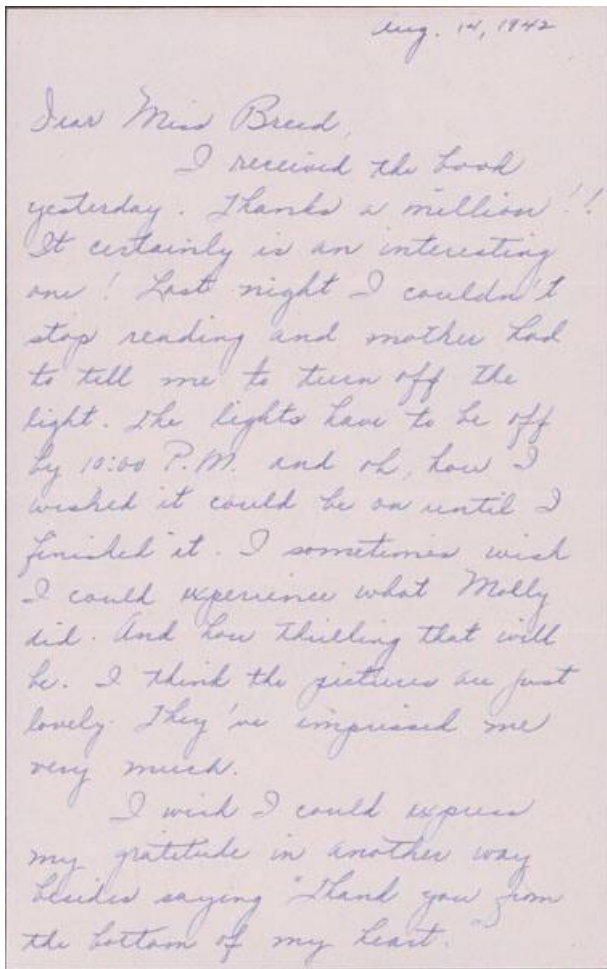 Aug. 14, 1942
Dear Miss Breed,
I received the book
yesterday. Thanks a million!!
It certainly is an interesting
one! Last night I couldn't
stop reading and mother had
to tell me to turn off the
light. The lights have to be off
by 10:00 P.M. and oh, how I
wished it could be on until I
finished it. I sometimes wish
I could experience what Molly
did. And how thrilling that will
be. I think the pictures are just
lovely. They've impressed me
very much.
I wish I could express
my gratitude in another way
besides saying "Thank you from
the bottom of my heart."